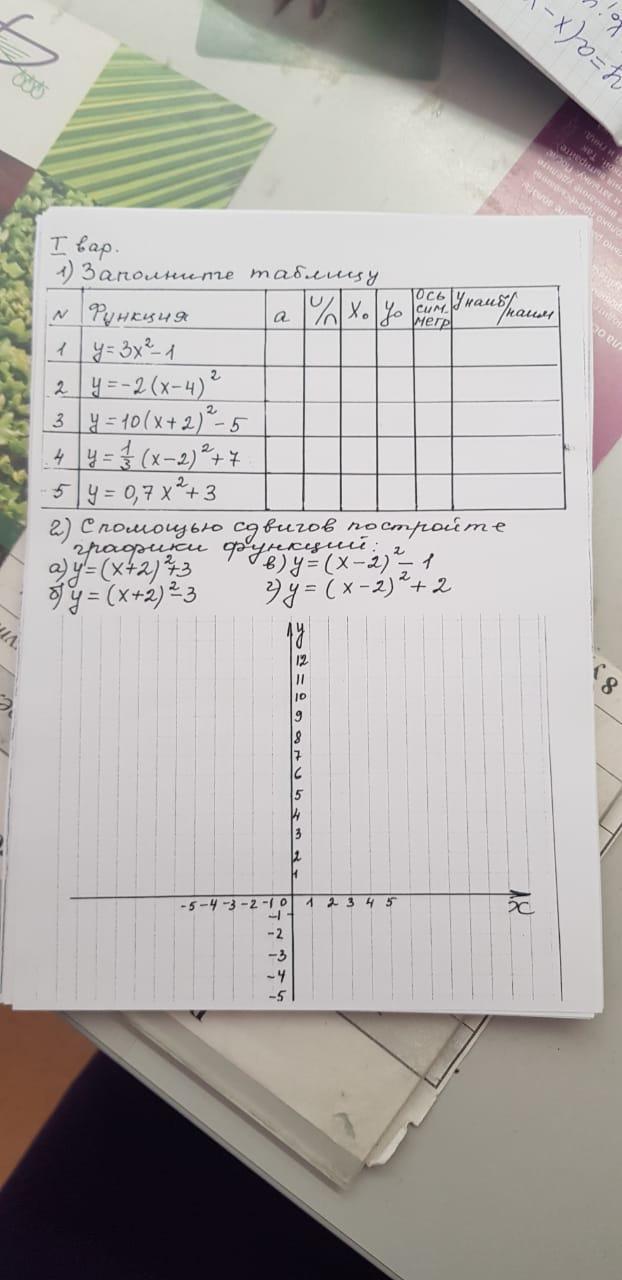 y=a(x-
I вар.
1) Заполните таблицу
N Функция a U/∩ X₀ y₀ Ось сим. метр y наиб/наим
1 y=3x²-1
2 y=-2(x-4)²
3 y=10(x+2)²-5
4 y=1/3(x-2)²+7
5 y=0,7x²+3
2) С помощью сдвигов постройте
графики функций:
а) y=(x+2)²+3 в) y=(x-2)²-1
б) y=(x+2)²-3 г) y=(x-2)²+2
y
12
11
10
9
8
7
6
5
4
3
2
1
-5 -4 -3 -2 -1 0 1 2 3 4 5 x
-1
-2
-3
-4
-5